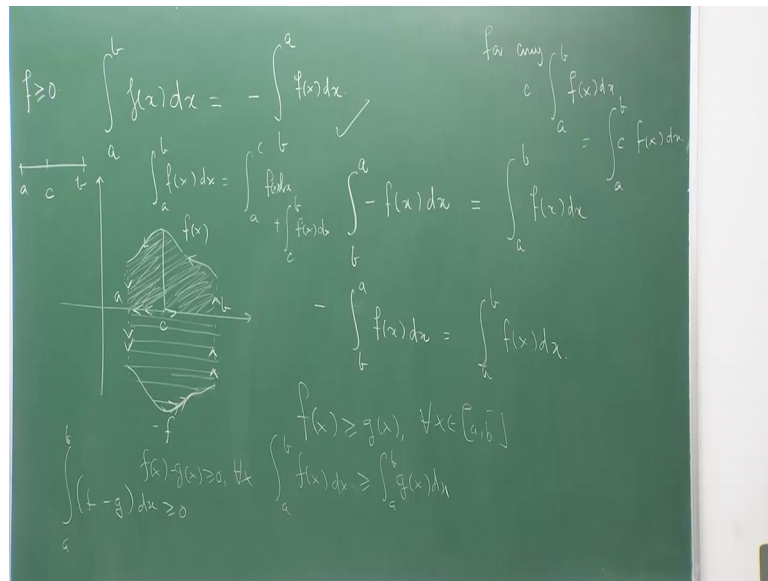 f≥0
∫_a^b f(x)dx = - ∫_b^a f(x)dx.
for any
c ∫_a^b f(x)dx
= ∫_a^b c f(x)dx
a c b
∫_a^b f(x)dx = ∫_a^c f(x)dx
+ ∫_c^b f(x)dx
∫_b^a - f(x)dx = ∫_a^b f(x)dx
f(x)
a c b
- ∫_b^a f(x)dx = ∫_a^b f(x)dx.
-f
f(x) ≥ g(x), ∀x∈[a,b]
f(x)-g(x)≥0, ∀x
∫_a^b (f-g)dx ≥0
∫_a^b f(x)dx ≥ ∫_a^b g(x)dx